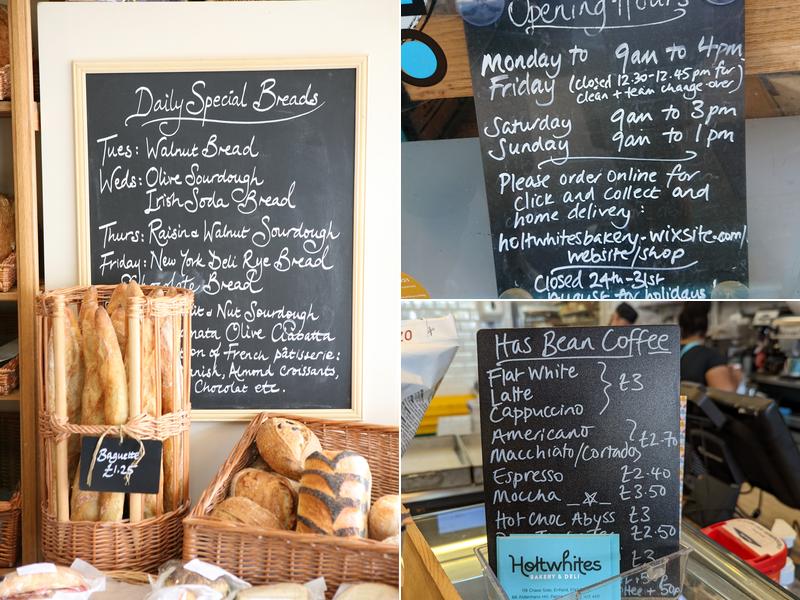 Daily Special Breads
Tues: Walnut Bread
Weds: Olive Sourdough
Irish Soda Bread
Thurs: Raisin & Walnut Sourdough
Friday: New York Deli Rye Bread
Bread
Nut Sourdough
Olive Ciabatta
of French pâtisserie:
Almond Croissants,
Chocolat etc.
Baguette
£1.25
Opening Hours
Monday to 9am to 4pm
Friday (closed 12.30-12.45pm for
clean + team change over)
Saturday 9am to 3pm
Sunday 9am to 1pm
Please order online for
click and collect and
home delivery:
holtwhitesbakery.wixsite.com/
website/shop
Closed 24th-31st
August for holidays
Has Bean Coffee
Flat White
Latte £3
Cappuccino
Americano
Macchiato/Cortados £2.70
Espresso £2.40
Moccha £3.50
Hot Choc Abyss £3
£2.50
£3
Holtwhites
BAKERY & DELI
+ 50p